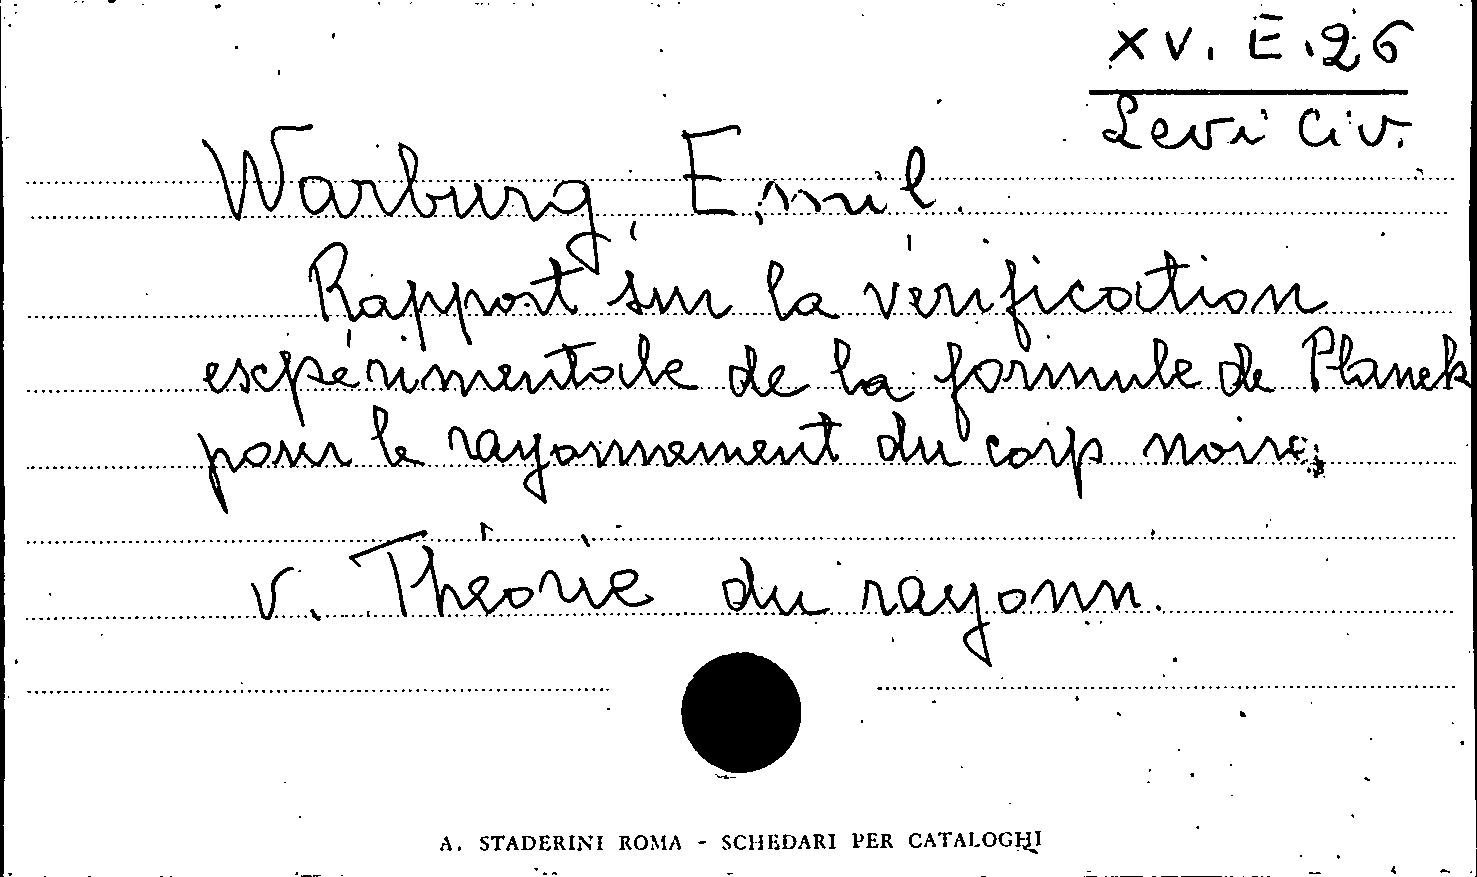 XV. E. 26
Levi Civ.
Warburg, Emil.
Rapport sur la vérification
expérimentale de la formule de Planck
pour le rayonnement du corp noire.
v. Théorie du rayonn.
A. STADERINI ROMA - SCHEDARI PER CATALOGHI